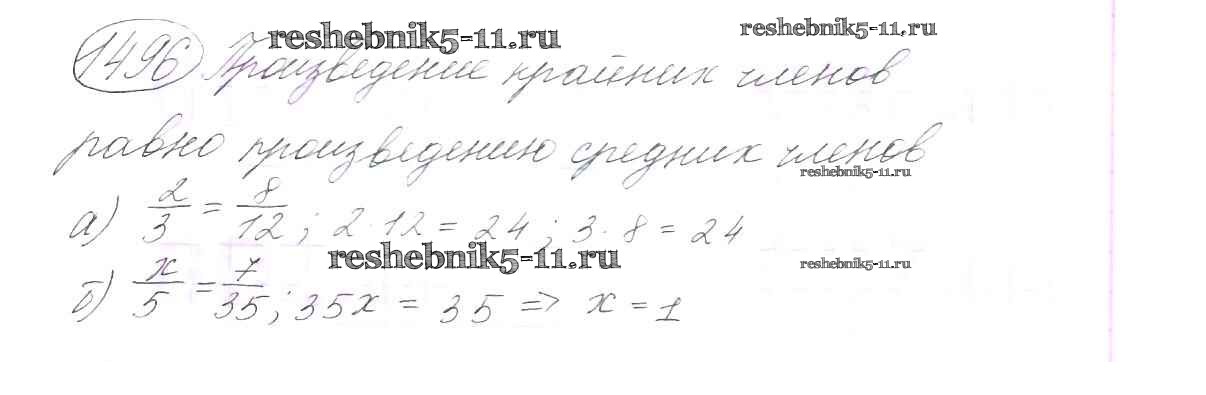 reshebnik5-11.ru reshebnik5-11.ru
1496 Произведение крайних членов
равно произведению средних членов
reshebnik5-11.ru
а) 2/3 = 8/12; 2·12 = 24; 3·8 = 24
reshebnik5-11.ru reshebnik5-11.ru
б) x/5 = 7/35; 35x = 35 => x = 1